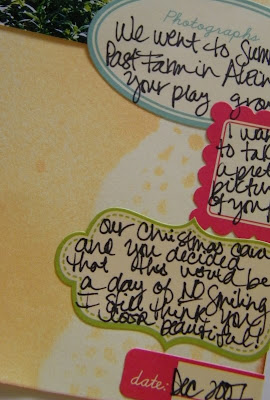 Photographs
We went to Sum
Past Farm in
your play gro
I wan
to tak
a pret
picture
of you
our Christmas
and you decided
that this would be
a day of NO smiling
I still think you
look beautiful!
date: Dec 2007